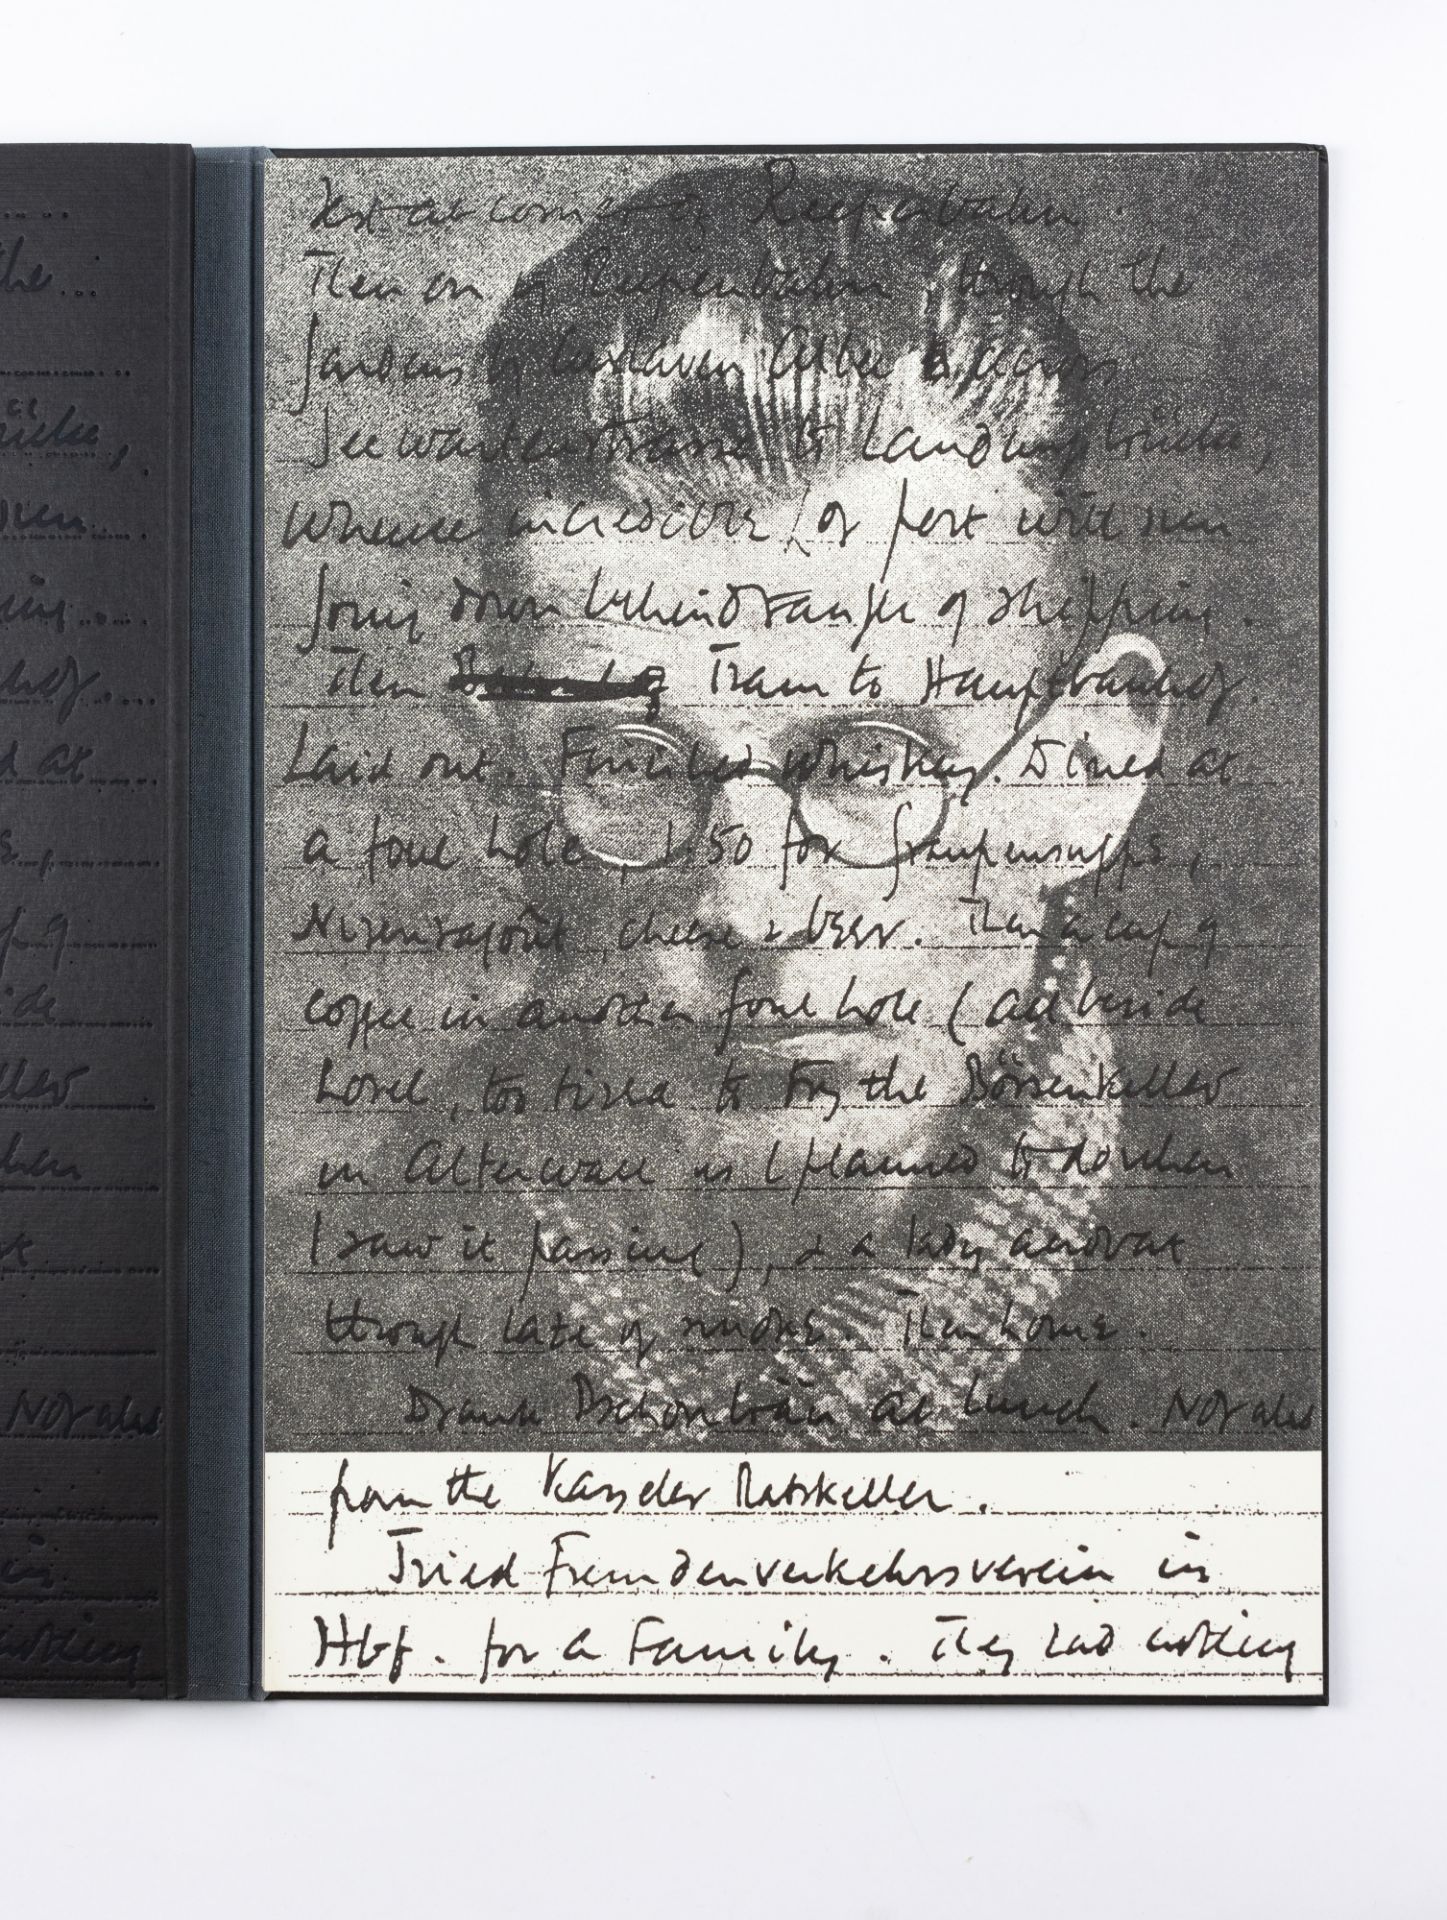 the ...
at
Not as
nothing
Rest at corner of Reeperbahn.
Then on by Reeperbahn, through the
gardens by Cuxhaven Allee & across
Seewartenstrasse to Landungsbrücke,
Whence incredible of port with sun
going down behind range of shipping.
Then Tram to Hauptbahnhof.
Laid out. Finished whiskey. Dined at
a foul hole, 1.50 for Graupensuppe,
Nirenragôut, cheese & beer. Then a cup of
coffee in another foul hole (all beside
hotel, too tired to try the Börsenkeller
in Alterwall as I planned to do when
I saw it passing), & a
through late of smoke. Then home.
Drank at lunch. Not as
from the Kasseler Ratskeller.
Tried Fremdenverkehrsverein in
Hbf. for a Family. They had nothing